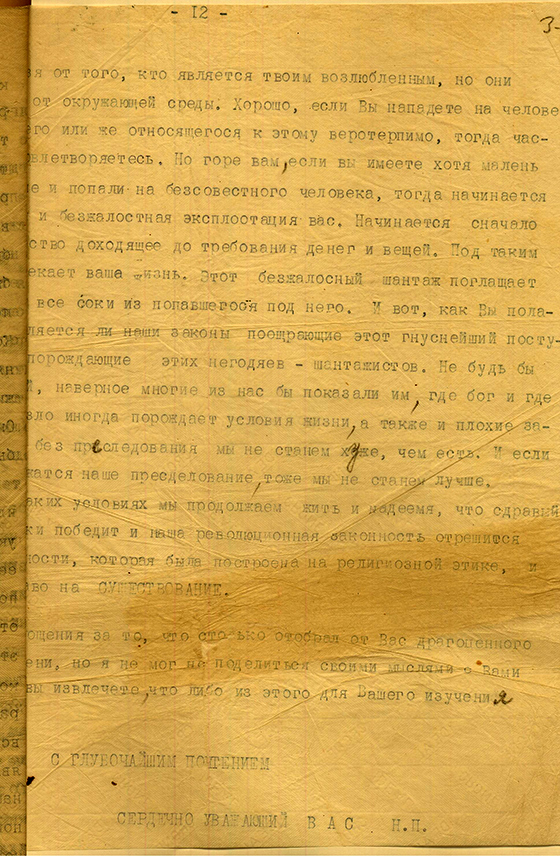 - 12 -
3-
ия от того, кто является твоим возлюбленным, но они
от окружающей среды. Хорошо, если Вы нападете на челове
его или же относящегося к этому веротерпимо, тогда час-
овлетворяетесь. Но горе вам,если вы имеете хотя малень
е и попали на безсовестного человека, тогда начинается
и безжалостная эксплоотация вас. Начинается сначало
ство доходящее до требования денег и вещей. Под таким
екает ваша жизнь. Этот безжалосный шантаж поглащает
все соки из попавшегося под него. И вот, как Вы пола-
ляется ли наши законы поощрающие этот гнуснейший посту-
порождающие этих негодяев - шантажистов. Не будь бы
й, наверное многие из нас бы показали им, где бог и где
зло иногда порождает условия жизни,а также и плохие за-
без преследования мы не станем хуже, чем есть. И если
жатся наше пресделование,тоже мы не станем лучше.
аких условиях мы продолжаем жить и надеемя, что здравый
ки победит и наша революционная законность отрешится
ности, которая была построена на религиозной этике, и
во на СУЩЕСТВОВАНИЕ.
ощения за то, что столько отобрал от Вас драгоценного
ени, но я не мог не поделиться своими мыслями с Вами
вы извлечете,что либо из этого для Вашего изучения
С ГЛУБОЧАЙШИМ ПОЧТЕНИЕМ
СЕРДЕЧНО УВАЖАЮЩИЙ В А С Н.П.